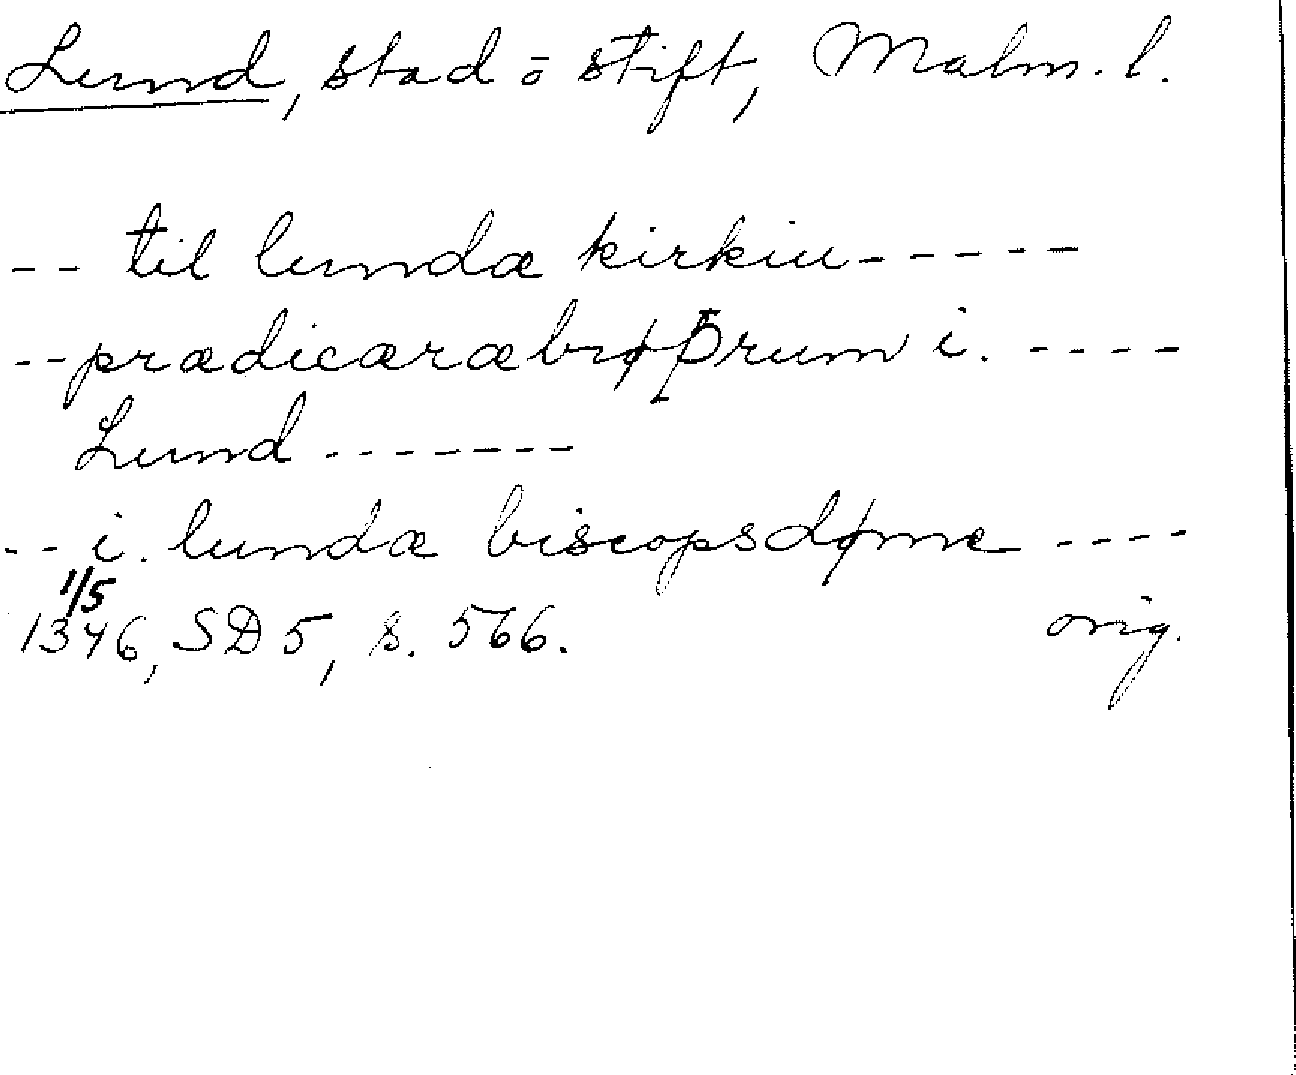 Lund, stad o stift, Malm. l.
-- til lundæ kirkiu -----
-- prædicaræbrøþrum i. ----
Lund -------
-- i. lundæ biscopsdøme ----
1/5
1346, SD 5, s. 566.
orig.